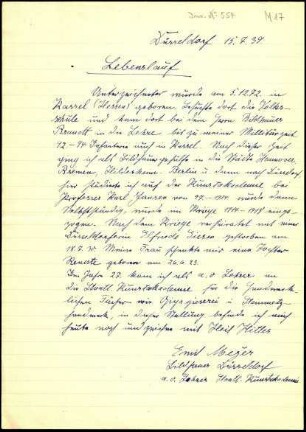 M 17
Düsseldorf 15.7.39
Lebenslauf
Unterzeichneter wurde am 5.12.92. in
Kassel (Hessen) geboren besuchte dort die Volks-
schule und kam dort bei dem Herrn Bildhauer
in die Lehre bis zu meiner Militärzeit
12-14 Infanterie auch in Kassel. Nach dieser Zeit
ging ich als Bildhauergehilfe in die Städte Hannover,
Bremen, Hildesheim Berlin u dann nach Düsseldorf
hier studierte ich auf der Kunstakademie bei
Professor Karl Janssen von wurde dann
selbstständig, wurde im Kriege 1914-1918 einge-
zogen. Nach dem Kriege verheiratet mit einer
geborene
18.7. Meine Frau schenkte mir eine Tochter
Renate geboren am 26.6.23.
Im Jahre 27. kam ich als a.o Lehrer an
die Staatl Kunstakademie für die handwerk-
lichen Fächer wie Gipsgiesserei u Steinmetz-
handwerk, in dieser Stellung befinde ich mich
heute noch und zeichne mit Heil Hitler
Ernst Meizer
Bildhauer Düsseldorf
a.o. Lehrer Staatl. Kunstakademie